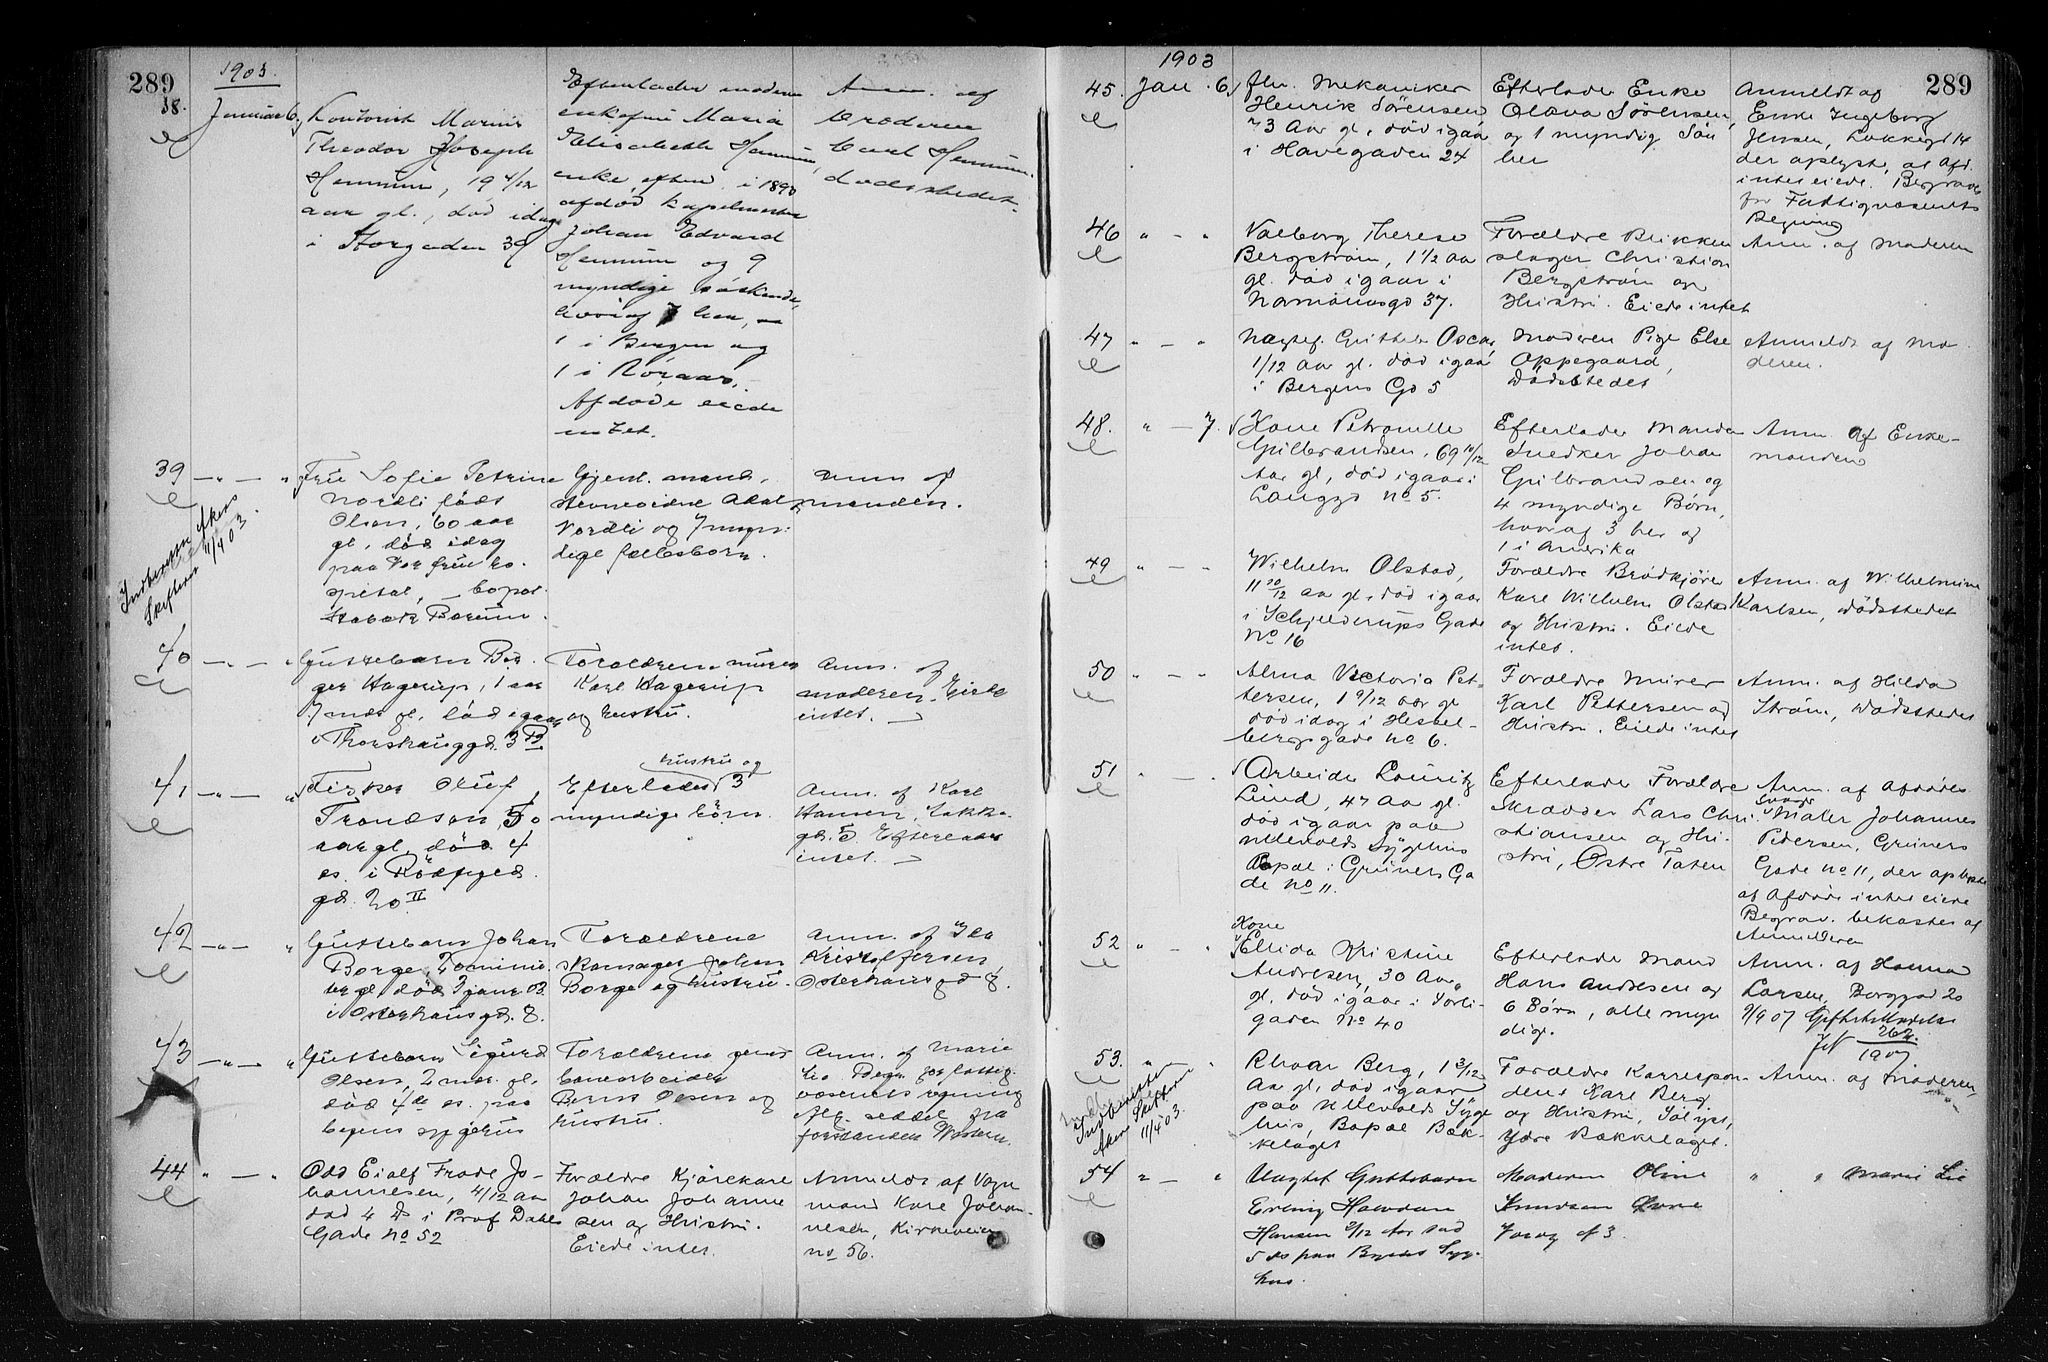 289
1903.
38.
Januar 6.
Kontorist Marius
Theodor Joseph
Hennum, 19 4/12
aar gl., død idag
i Storgaden 39
Efterlader moderen
enkefru Maria
Elisabeth Hennum,
enke efter i 1890
afdød kapelmester
Johan Edvard
Hennum og 9
myndige søskende,
hvoraf 7 her,
1 i Bergen og
1 i Røraas.
Afdøde eiede
intet.
Anm. af
broderen
Carl Hennum.
dødsstedet.
39
Fru Sofie Petrine
Nordli født
Olsen, 60 aar
gl., død idag
paa Vor frue ho-
spital, bopæl
Stabæk Bærum.
Gjenl. mand,
Nordli og 7 myn-
dige fællesbørn.
Anm. af
manden.
Indberettet Aker
Skifteret 11/4 03.
40
Guttebarn Bir-
ger Hagerup, 1 aar
7 mdr gl., død igaar
i Thorshauggd. 3
Forældrene murer
Karl Hagerup
og hustru.
Anm. af
moderen. Eiede
intet.
41
Fisker Oluf
Trondsen, 50
aar gl. død 4
ds. i Rødfyld
gd. 20 II
hustru og
Efterlader 3
myndige börn.
Anm. af Karl
Hansen, Lakke-
gd. 5. Efterlader
intet.
42
Guttebarn Johan
Borge, 7 minu-
ter gl. død 3 janr 03
i Osterhausgd. 8.
Forældrene
skomager Johan
Borge og hustru.
Anm. af Ida
Kristoffersen
Osterhausgd 8.
43
Guttebarn Sigurd
Olsen, 2 mdr. gl.
död 4de ds. paa
byens sygehus
Forældrene
banearbeider
Bernt Olsen og
hustru.
Anm. af Marie
Lie Begr. for fattig-
væsenets regning
iflg. seddel fra
forstander Western.
44
Odd Eialf Frode Jo-
hannesen, 4/12 aar
død 4 ds i Prof Dahls
Gade no 52
Forældre Kjørekarl
Johan Johanne
sen og Hustru.
Eiede intet.
Anmeldt af Vogn
mand Karl Johan-
nesen, Kirkeveien
no 56.
1903
289
45.
Jan. 6.
fhv. Mekaniker
Henrik Sörensen
73 Aar gl., död igaar
i Havegaden 24
Efterlader Enke
Olava Sörensen,
og 1 myndig Søn
her
Anmeldt af
Enke Ingeborg
Jensen, Lakkegd 14
der oplyste, at Afd.
intet eiede. Begraves
for Fattigvæsenets
Regning
46
Valborg Therese
Bergström, 1 1/2 aar
gl. död igaar i
Mariboesgd 37.
Forældre Blikken
slager Christian
Bergström og
Hustru. Eiede intet
Anm. af Moderen
47
Uægtef. Guttebarn Oscar
1/12 Aar gl. död igaar
i Bergens Gd 5
Moderen Pige Else
Oppegaard,
Dødsstedet
Anmeldt af Mo
deren.
48.
7.
Kone Petronille
Gulbrandsen, 69 10/12
Aar gl., död igaar i
Langgd no 5.
Efterlader Mand
Snedker Johan
Gulbrandsen og
4 myndige Børn,
hvoraf 3 her og
1 i Amerika
Anm. af Enke-
manden
49
Wilhelm Olstad,
11 10/12 aar gl., död igaar
i Schjelderups Gade
No 16
Forældre Brødkjører
Karl Wilhelm Olstad
og Hustru. Eiede
intet.
Anm. af Wilhelmine
Karlsen, Dødsstedet
50
Alma Victoria Pet-
tersen, 1 9/12 aar gl
død idag i Hessel-
bergsgade no 6.
Forældre Murer
Karl Pettersen og
Hustru. Eiede intet
Anm. af Hilda
Ström, Dødsstedet
51
Arbeider Lauritz
Lund, 47 Aar gl.
död igaar paa
Ullevolds Sygehus
Bopæl i Grüners Ga
de no 11.
Efterlader Forældre
Skrædder Lars Chri-
stiansen og Hu-
stru, Østre Toten
Anm. af Afdødes
Svoger
Maler Johannes
Pedersen, Grüners
Gade no 11, der oplyste
at Afdöde intet eiede
Begrav. bekostes af
Anmelderen
52
Kone
Elida Kristine
Andresen, 30 Aar
gl., död igaar i Torli-
gaden No 40
Efterlader Mand
Hans Andresen og
6 Børn, alle umyn
dige.
Anm. af Hanna
Larsen, Borggad 20
53.
Rhoar Berg, 1 3/12
Aar gl., död igaar
paa Ullevolds Syge
hus, Bopæl Bæk-
kelaget
Forældre Korrespon-
dent Karl Berg
og Hustru, Solvist,
Ydre Bækkelaget.
Anm. af Moderen
Indberettet
Akers Skifteret
11/4 03.
54
Uægtef Guttebarn
Erling Halvdan
Hansen 2/12 Aar død
5 ds paa Byens Syge-
hus.
Moderen Oline
Knudsen
" " Marie Lie